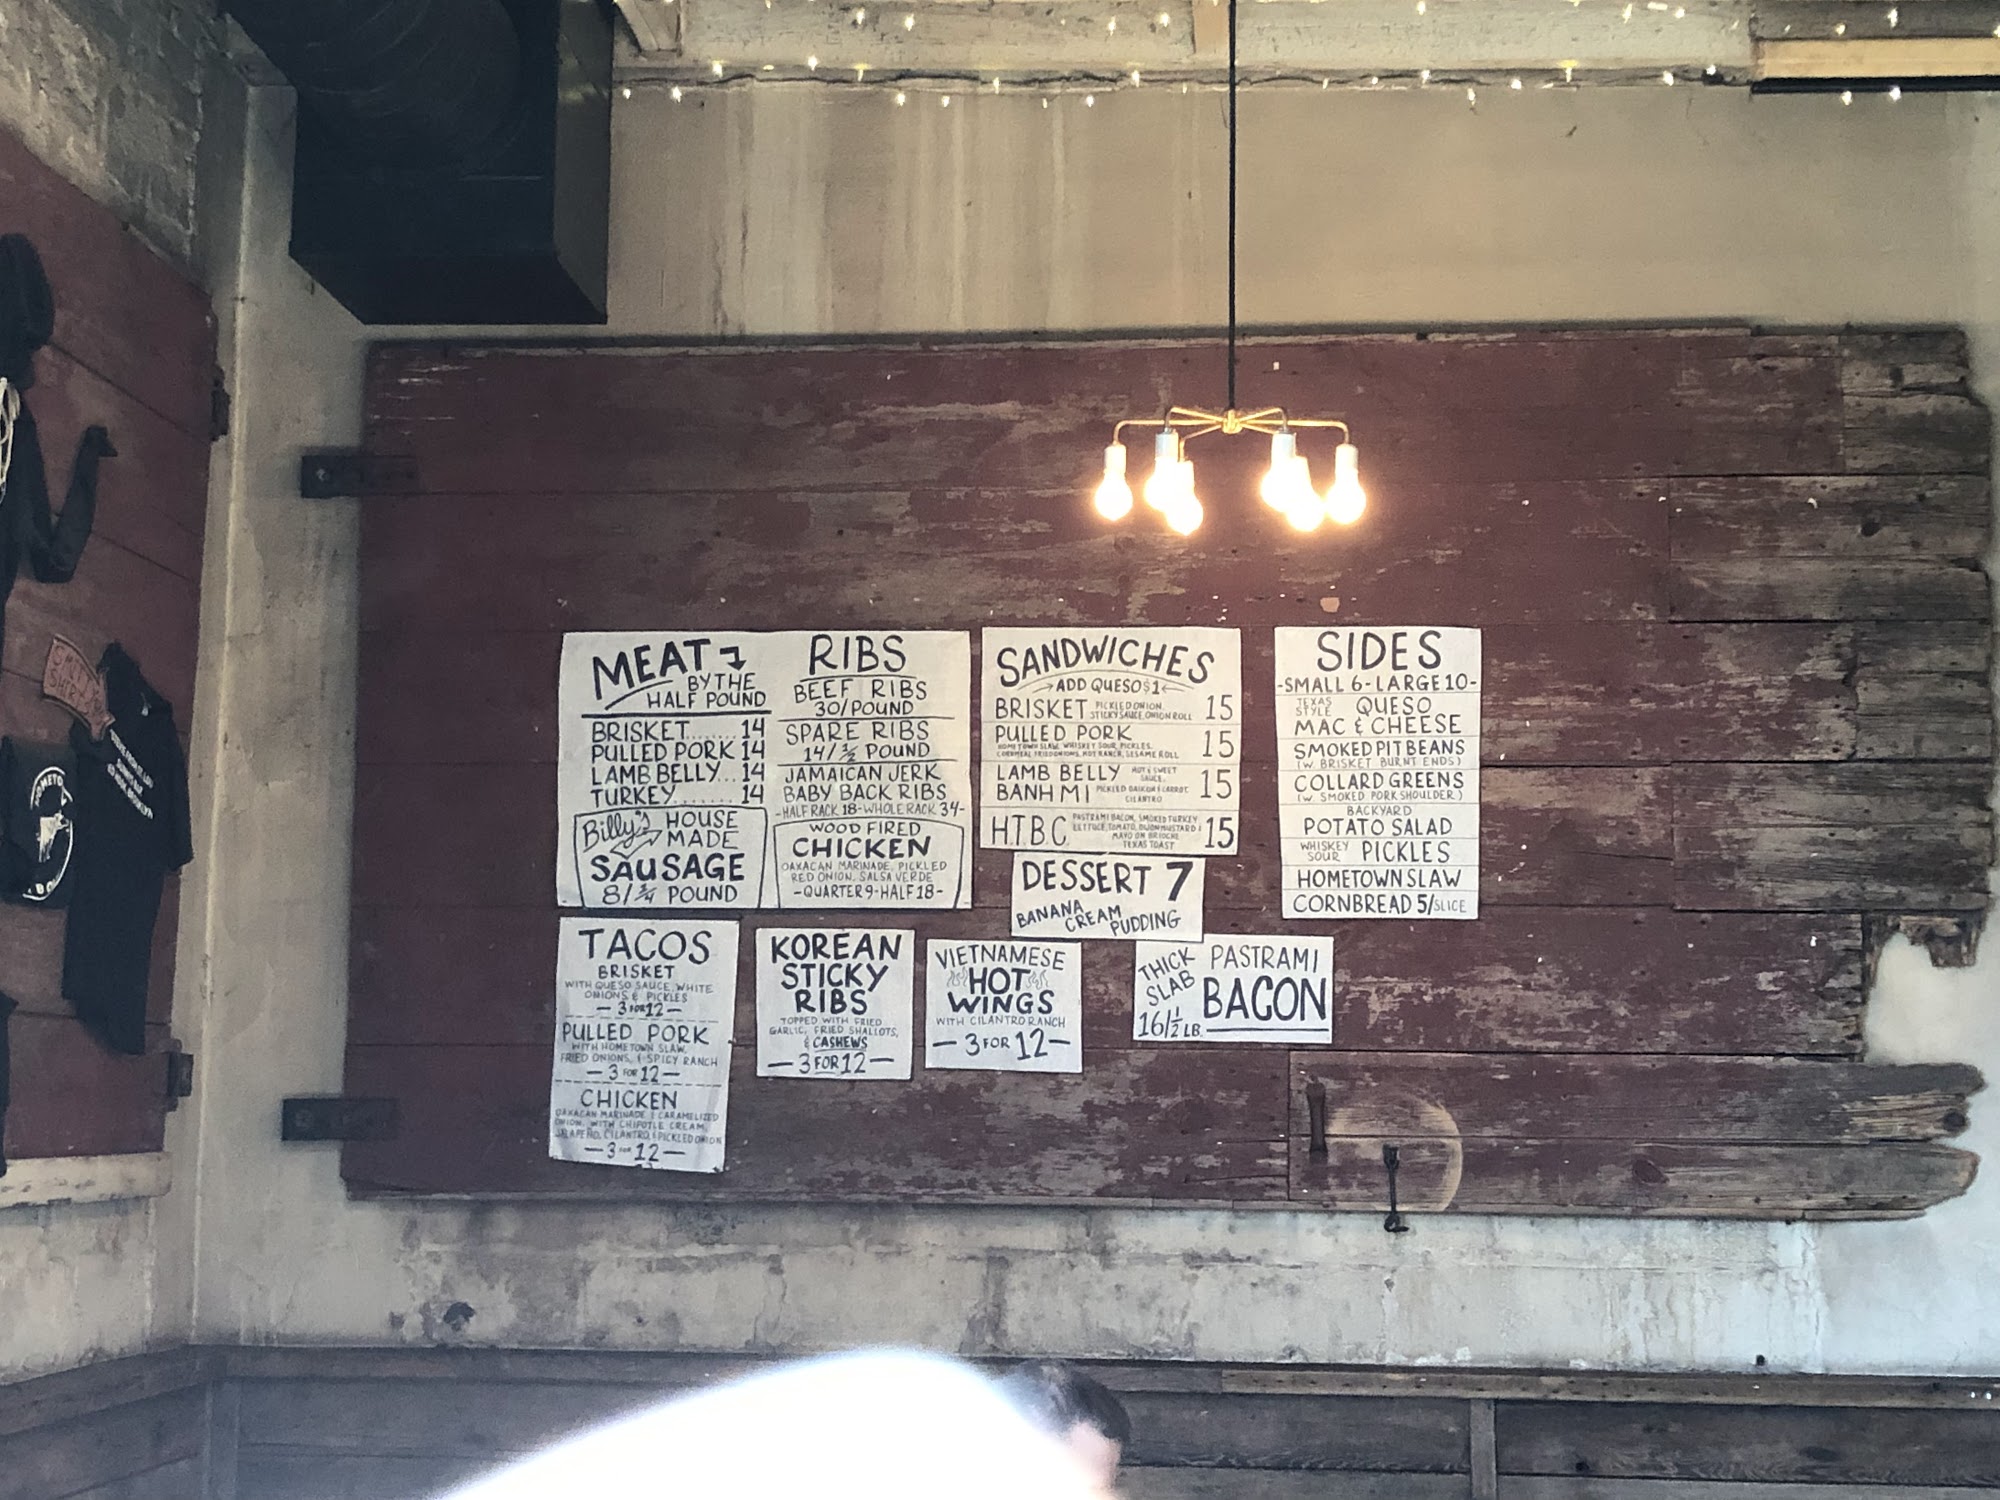 MEAT
BY THE
HALF POUND
BRISKET........14
PULLED PORK 14
LAMB BELLY...14
TURKEY........14
Billy's HOUSE
MADE
SAUSAGE
8/¾ POUND
RIBS
BEEF RIBS
30/POUND
SPARE RIBS
14/½ POUND
JAMAICAN JERK
BABY BACK RIBS
-HALF RACK 18-WHOLE RACK 34-
WOOD FIRED
CHICKEN
OAXACAN MARINADE, PICKLED
RED ONION, SALSA VERDE
-QUARTER 9-HALF 18-
SANDWICHES
ADD QUESO $1
BRISKET PICKLED ONION, 15
STICKY SAUCE, ONION ROLL
PULLED PORK 15
HOMETOWN SLAW, WHISKEY SOUR PICKLES,
CORNMEAL FRIED ONIONS, HOT RANCH, SESAME ROLL
LAMB BELLY HOT & SWEET
SAUCE, 15
BANH MI PICKLED DAIKON & CARROT,
CILANTRO
H.T.B.C. PASTRAMI BACON, SMOKED TURKEY 15
LETTUCE, TOMATO, DIJON MUSTARD &
MAYO ON BRIOCHE
TEXAS TOAST
DESSERT 7
BANANA
CREAM
PUDDING
SIDES
-SMALL 6-LARGE 10-
TEXAS
STYLE QUESO
MAC & CHEESE
SMOKED PIT BEANS
(W. BRISKET BURNT ENDS)
COLLARD GREENS
(W. SMOKED PORK SHOULDER)
BACKYARD
POTATO SALAD
WHISKEY
SOUR PICKLES
HOMETOWN SLAW
CORNBREAD 5/SLICE
TACOS
BRISKET
WITH QUESO SAUCE, WHITE
ONIONS & PICKLES
-3 FOR 12-
PULLED PORK
WITH HOMETOWN SLAW,
FRIED ONIONS, & SPICY RANCH
-3 FOR 12-
CHICKEN
OAXACAN MARINADE & CARAMELIZED
ONION, WITH CHIPOTLE CREAM,
JALAPEÑO, CILANTRO, & PICKLED ONION
-3 FOR 12-
KOREAN
STICKY
RIBS
TOPPED WITH FRIED
GARLIC, FRIED SHALLOTS,
& CASHEWS
-3 FOR 12-
VIETNAMESE
HOT
WINGS
WITH CILANTRO RANCH
-3 FOR 12-
THICK
SLAB
16/½ LB.
PASTRAMI
BACON